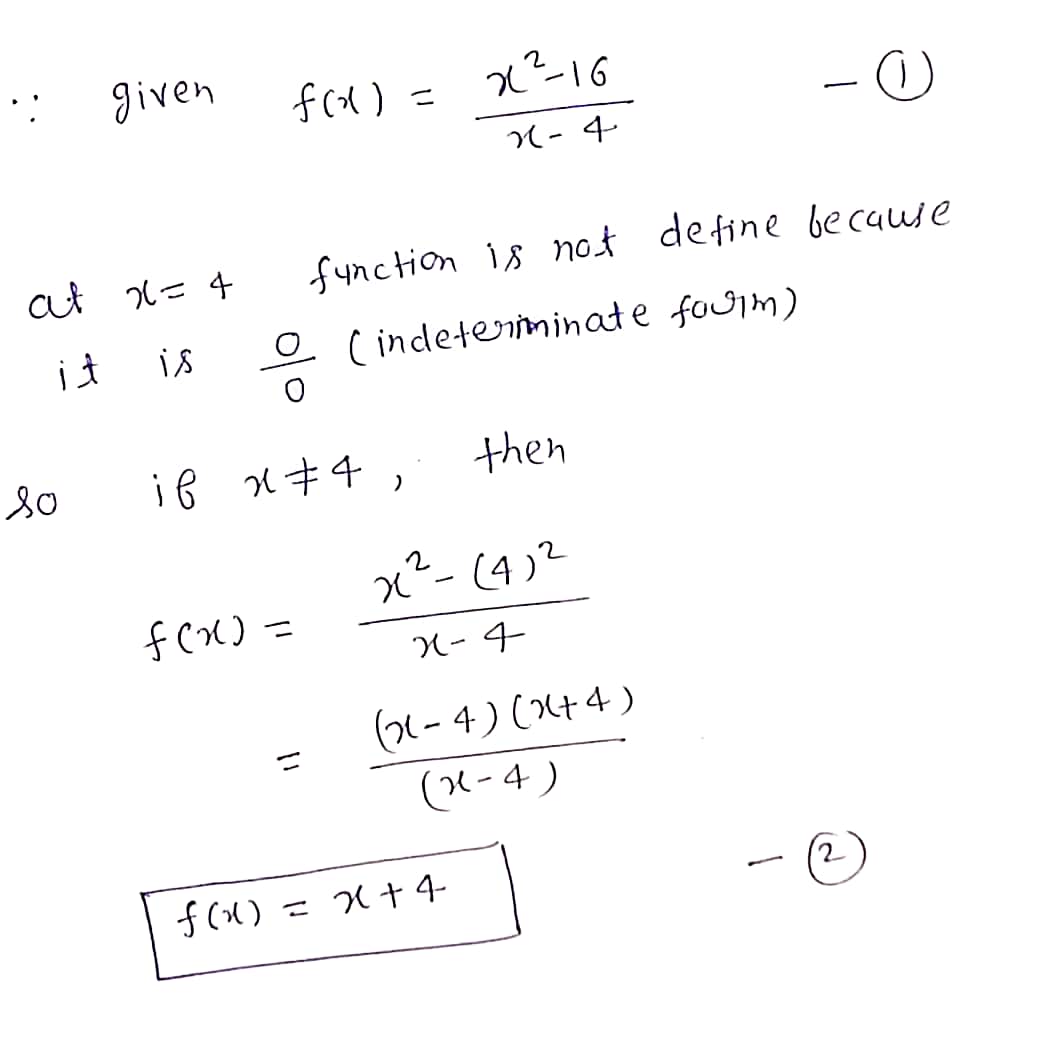 ∵ given f(x) = x²-16 / x-4 - ①
at x=4 function is not define because
it is 0/0 (indeterminate form)
so if x≠4, then
f(x) = x²-(4)² / x-4
= (x-4)(x+4) / (x-4)
f(x) = x+4 - ②